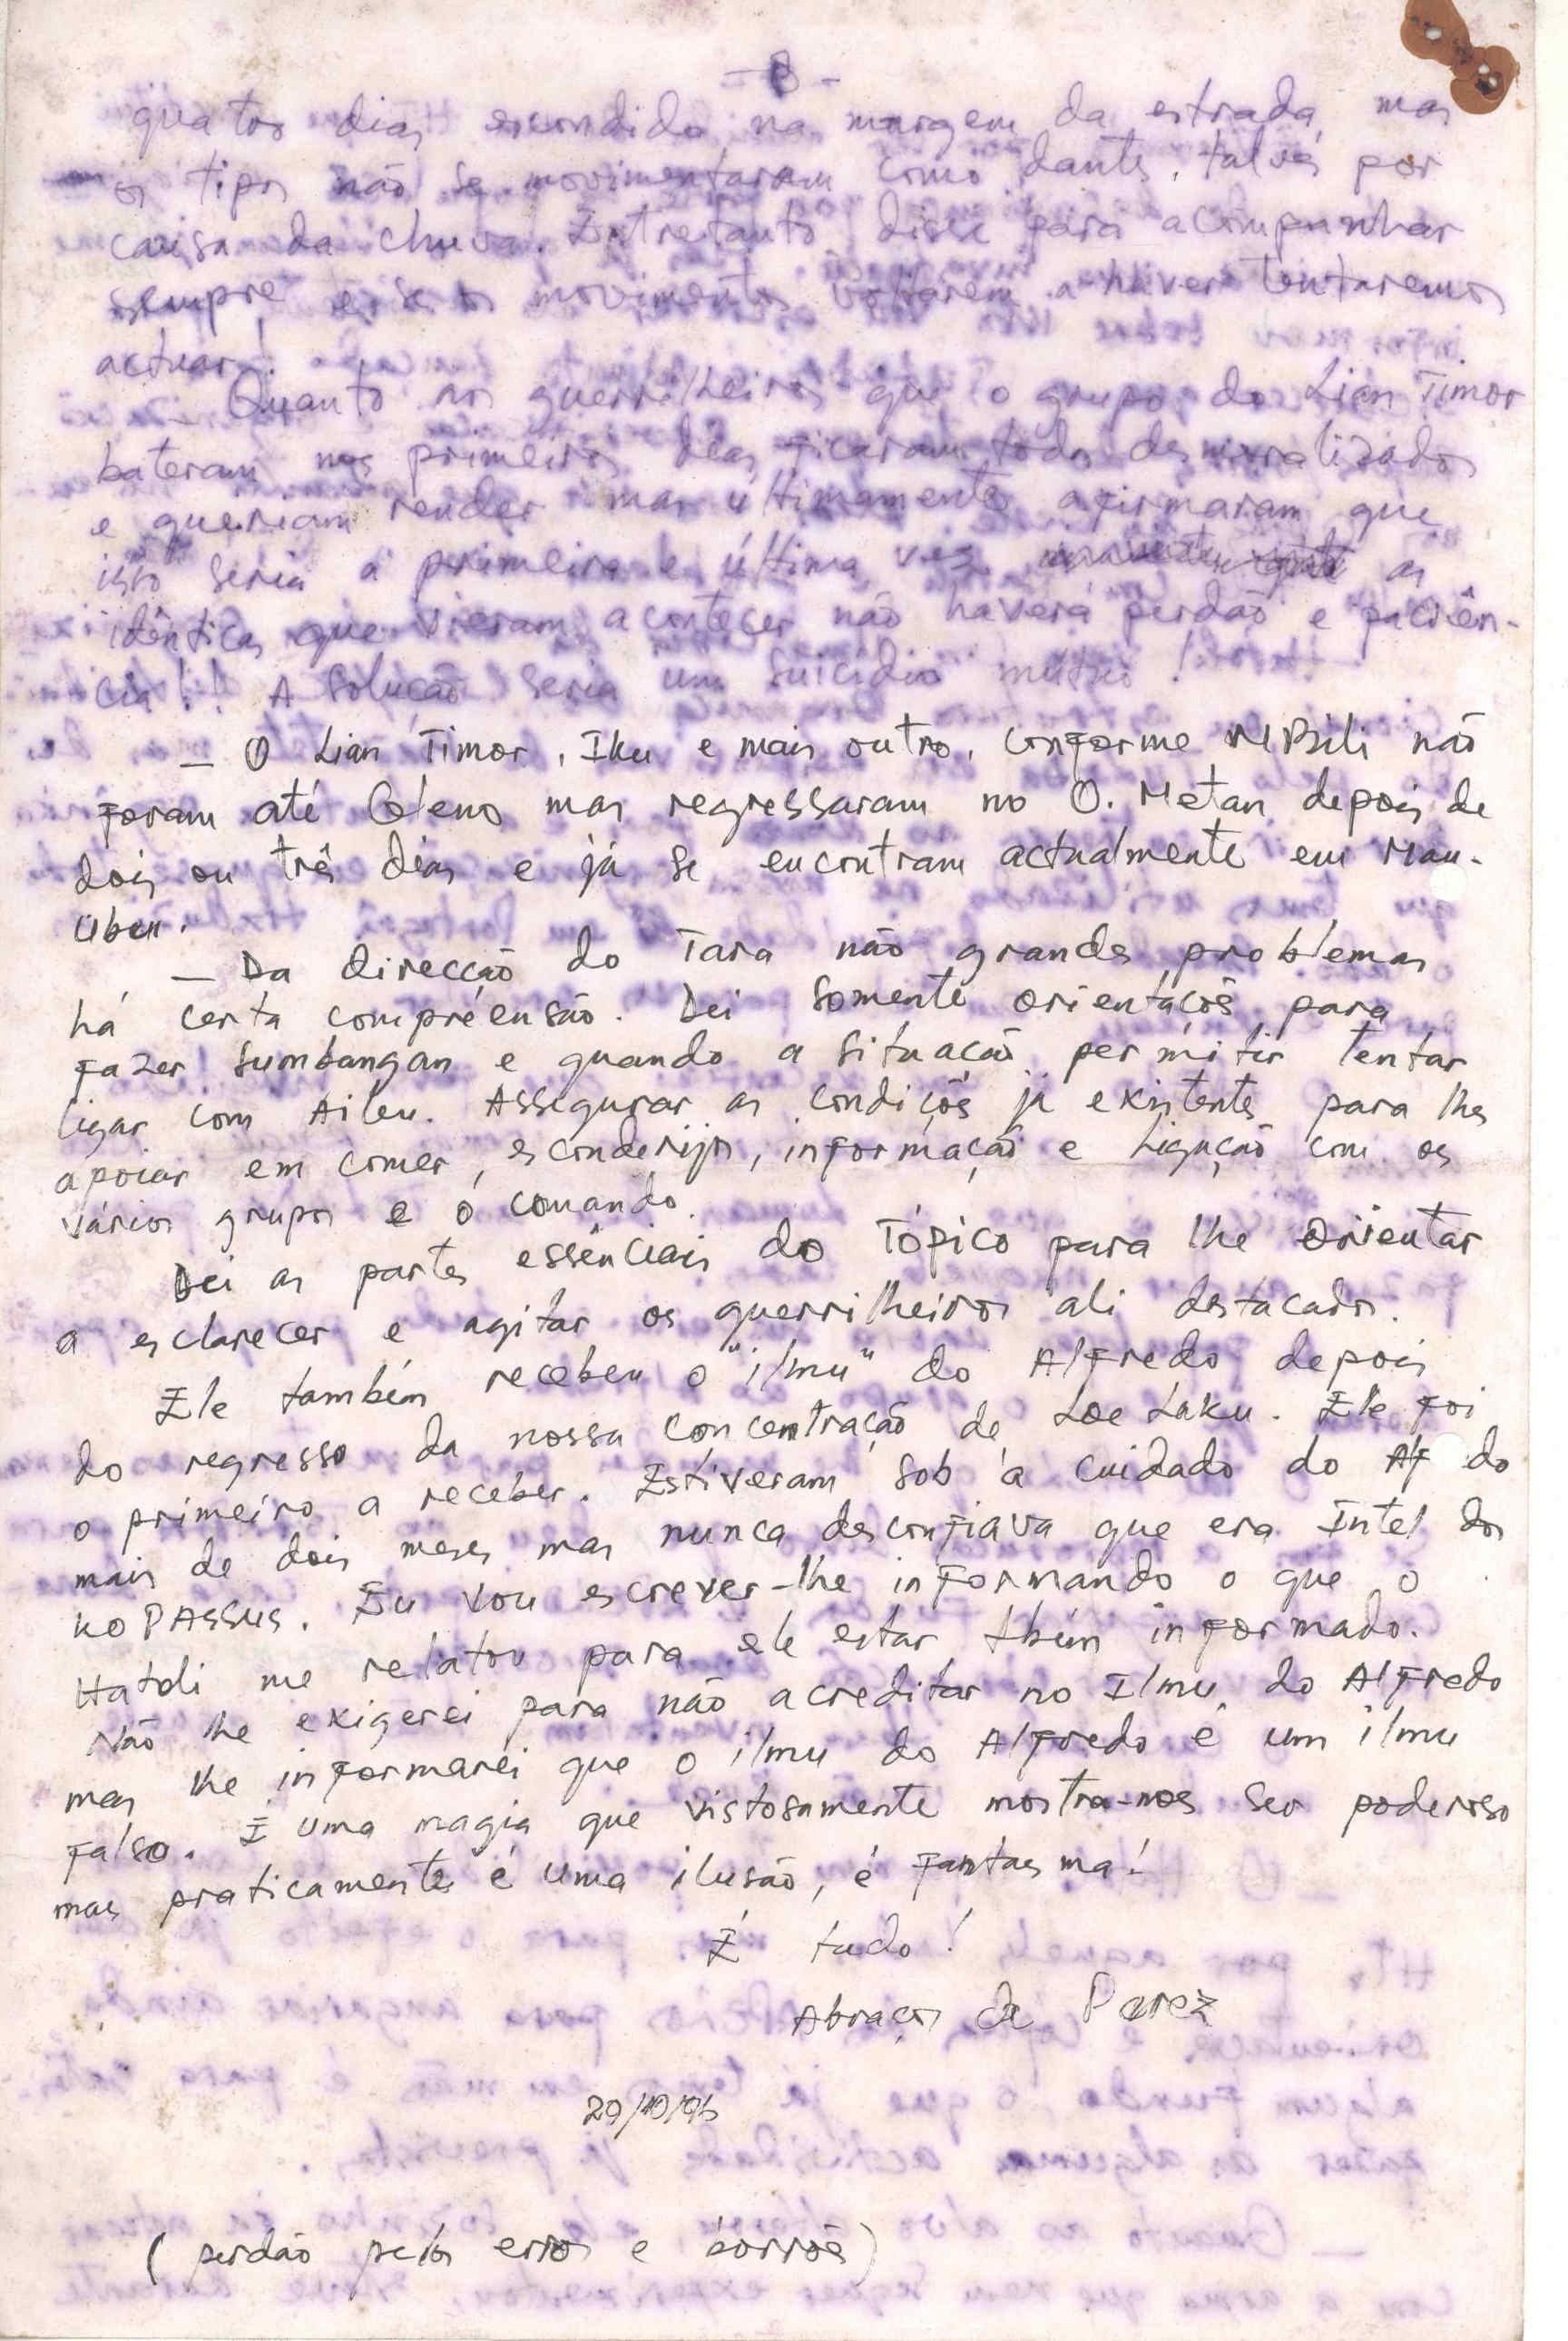 - 8 -
quatro dias escondido na margem da estrada mas
os tipos não se movimentaram como dantes, talvés por
causa da chuva. Entretanto disse para acompanhar
sempre e se os movimentos voltarem a haver tentaremos
actuar!
_ Quanto aos guerrilheiros que o grupo do Lian Timor
bateram nos primeiros dias ficaram todos desmoralizados
e queriam render mas últimamente afirmaram que
isto seria a primeira e última vez as
idênticas que vieram acontecer não haverá perdão e paciên-
cia!! A solução seria um suicídio mútuo!
_ O Lian Timor, Iku e mais outro, conforme MBili não
foram até Gleno mas regressaram no O. Metan depois de
dois ou três dias e já se encontram actualmente em Mau-
Ubu.
_ Da direcção do Tara não grandes problemas
há certa compreensão. Dei somente orientações para
fazer sumbangan e quando a situação permitir tentar
ligar com Aileu. Assegurar as condições já existentes para lhes
apoiar em comer, esconderijos, informação e Ligação com os
vários grupos e o comando.
Dei as partes essênciais do Tópico para lhe Orientar
a esclarecer e agitar os guerrilheiros ali destacados.
Ele também recebeu o "ilmu" do Alfredo depois
do regresso da nossa concentração de Loe Laku. Ele foi
o primeiro a receber. Estiveram sob a cuidado do Alf do
mais de dois meses mas nunca desconfiava que era Intel dos
KOPASSUS. Eu vou escrever-lhe informando o que o
Hatoli me relatou para ele estar tbém informado.
Não lhe exigerei para não acreditar no Ilmu do Alfredo
mas lhe informarei que o ilmu do Alfredo é um ilmu
falso. É uma magia que vistosamente mostra-nos ser poderoso
mas praticamente é uma ilusão, é fantasma!
É tudo!
Abraços de Perez
29/10/96
( perdão pelos erros e borrões)